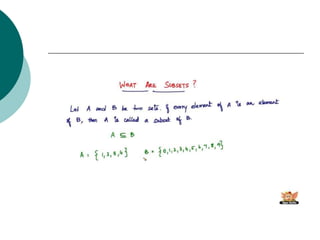 WHAT ARE SUBSETS?
Let A and B be two sets. If every element of A is an element
of B, then A is called a subset of B.
A ⊆ B
A = { 1, 2, 3, 4 } B = { 0, 1, 2, 3, 4, 5, 6, 7, 8, 9 }